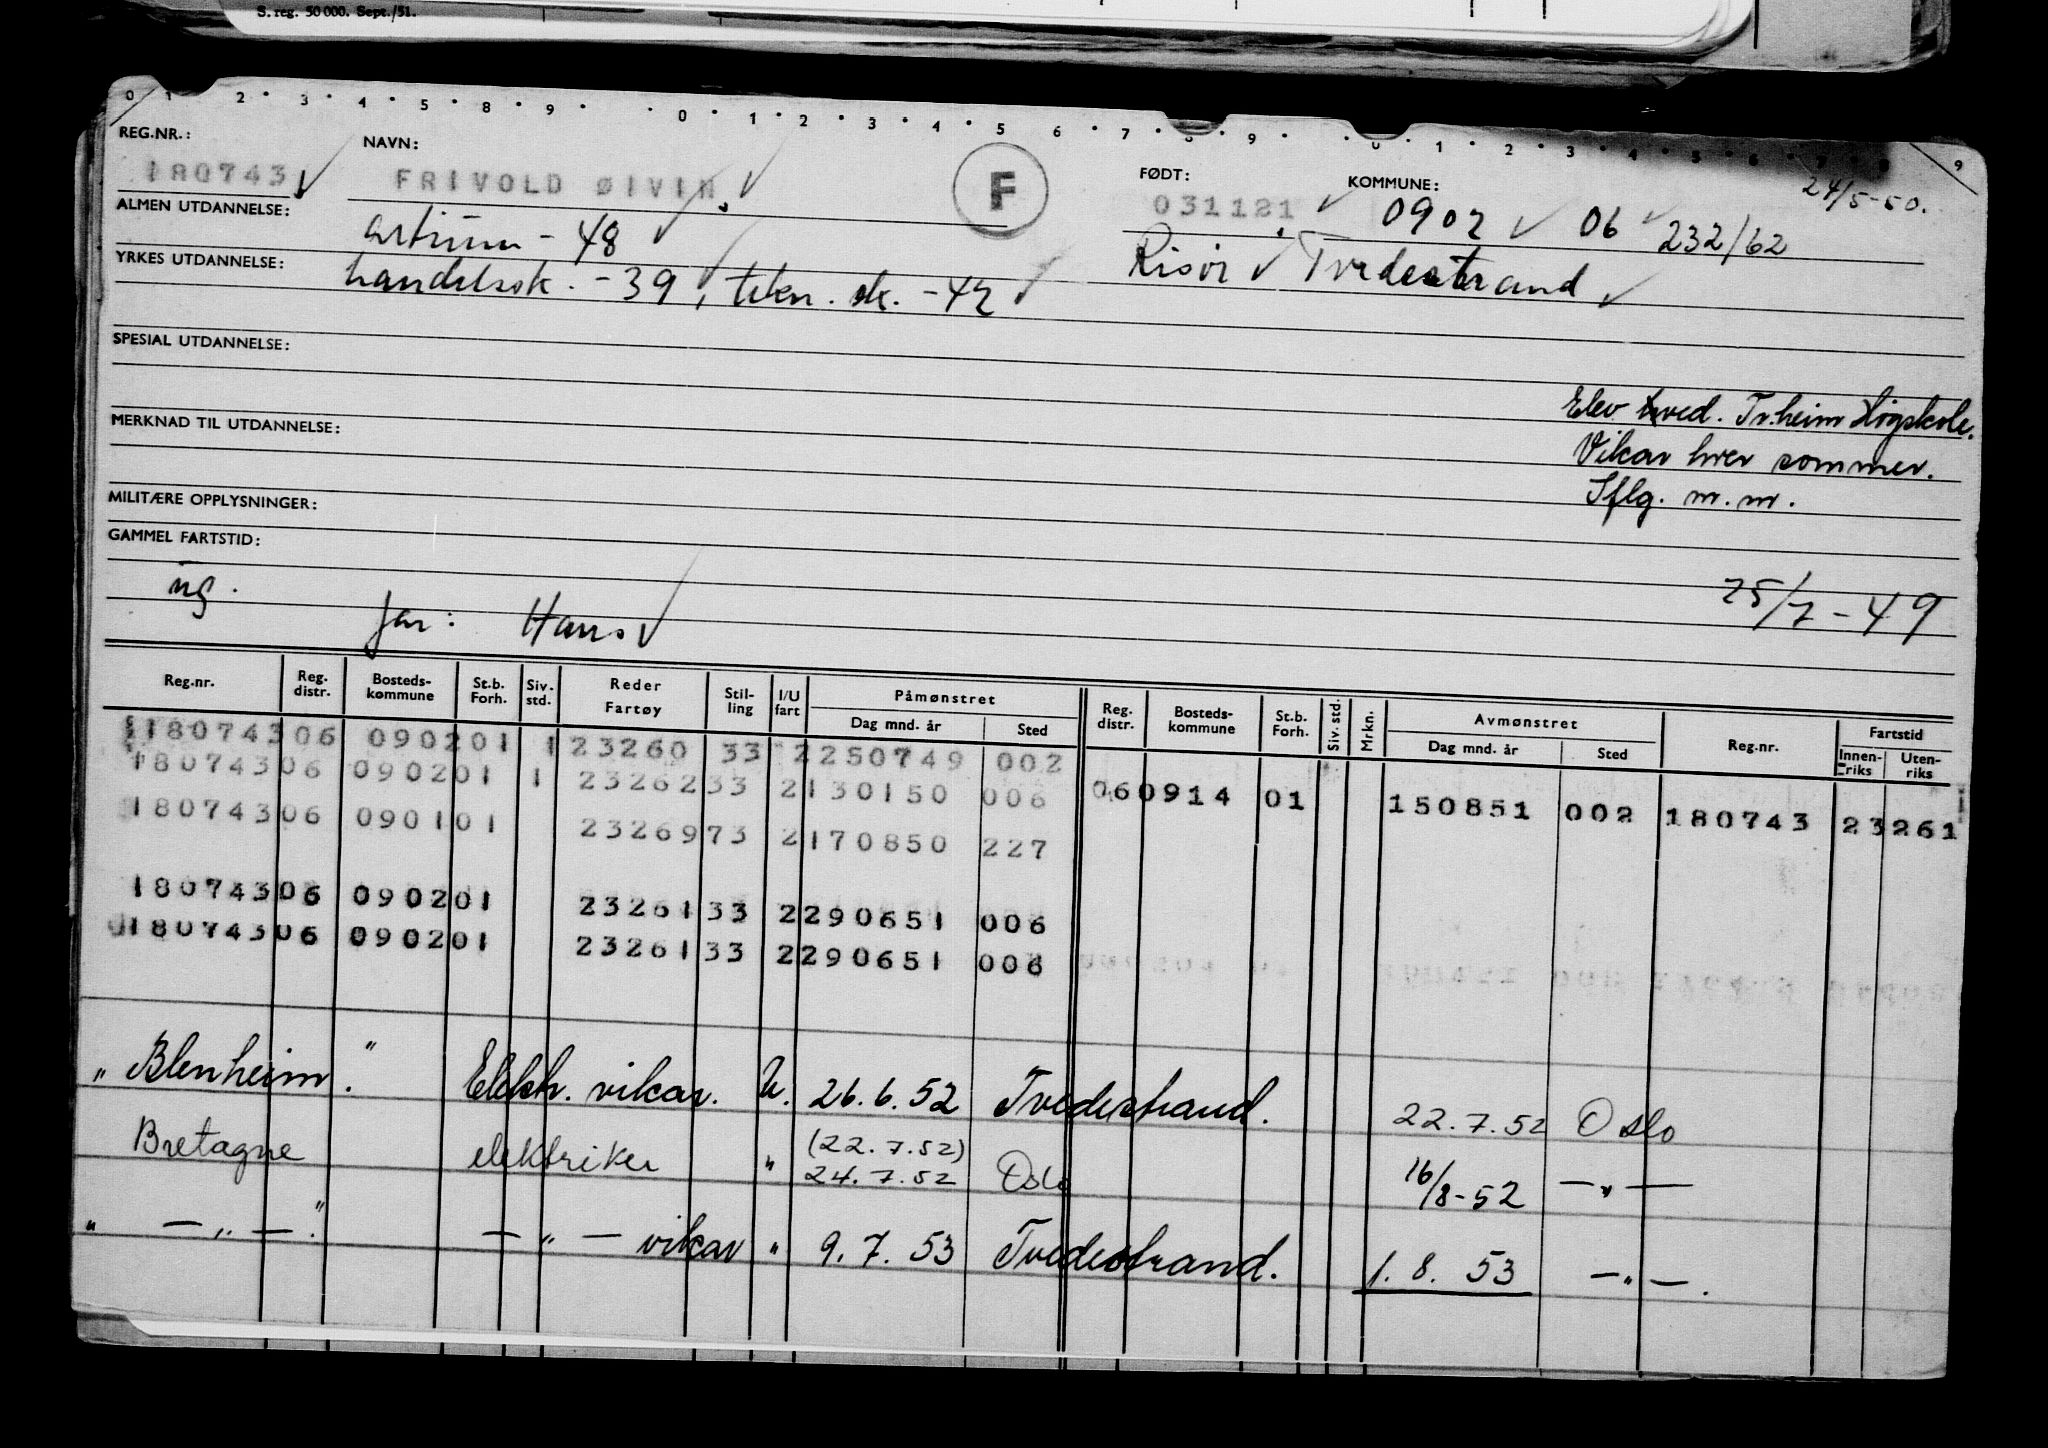 S. reg. 50 000. Sept./51.
0 1 2 3 4 5 8 9 0 1 2 3 4 5 6 7 8 9 0 1 2 3 4 5 6 7 8 9
REG.NR.: NAVN: FØDT: KOMMUNE: 24/5-50.
180743 FRIVOLD ØIVIN F 031121 0902 06 232/62
ALMEN UTDANNELSE: artium - 48 Risör Tvedestrand
YRKES UTDANNELSE: handelssk. - 39, tekn. sk. - 42
SPESIAL UTDANNELSE:
Elev ved. Tr.heim Högskole.
MERKNAD TIL UTDANNELSE:
Vikar hver sommer.
Iflg. m.m.
MILITÆRE OPPLYSNINGER:
GAMMEL FARTSTID:
ug. far: Hans 25/7-49
Reg.nr. Reg. distr. Bosteds-kommune St.b. Forh. Siv. std. Reder Fartøy Stil-ling I/U fart Påmønstret Dag mnd. år Sted Reg. distr. Bosteds-kommune St.b. Forh. Siv. std. Mrkn. Avmønstret Dag mnd. år Sted Reg.nr. Fartstid Innen-riks Uten-riks
180743 06 0902 01 1 23260 33 2 250749 002
180743 06 0902 01 1 23262 33 2 130150 006 06 0914 01 150851 002 180743 23 261
180743 06 0901 01 23269 73 2 170850 227
180743 06 0902 01 23261 33 2 290651 006
180743 06 0902 01 23261 33 2 290651 006
" Blenheim". Elektr. vikar. U. 26.6.52 Tvedestrand. 22.7.52 Oslo
Bretagne elektriker " (22.7.52)
24.7.52 Oslo 16/8-52 — " —
" — " — ". — " — vikar " 9.7.53 Tvedestrand. 1.8.53 — " — .